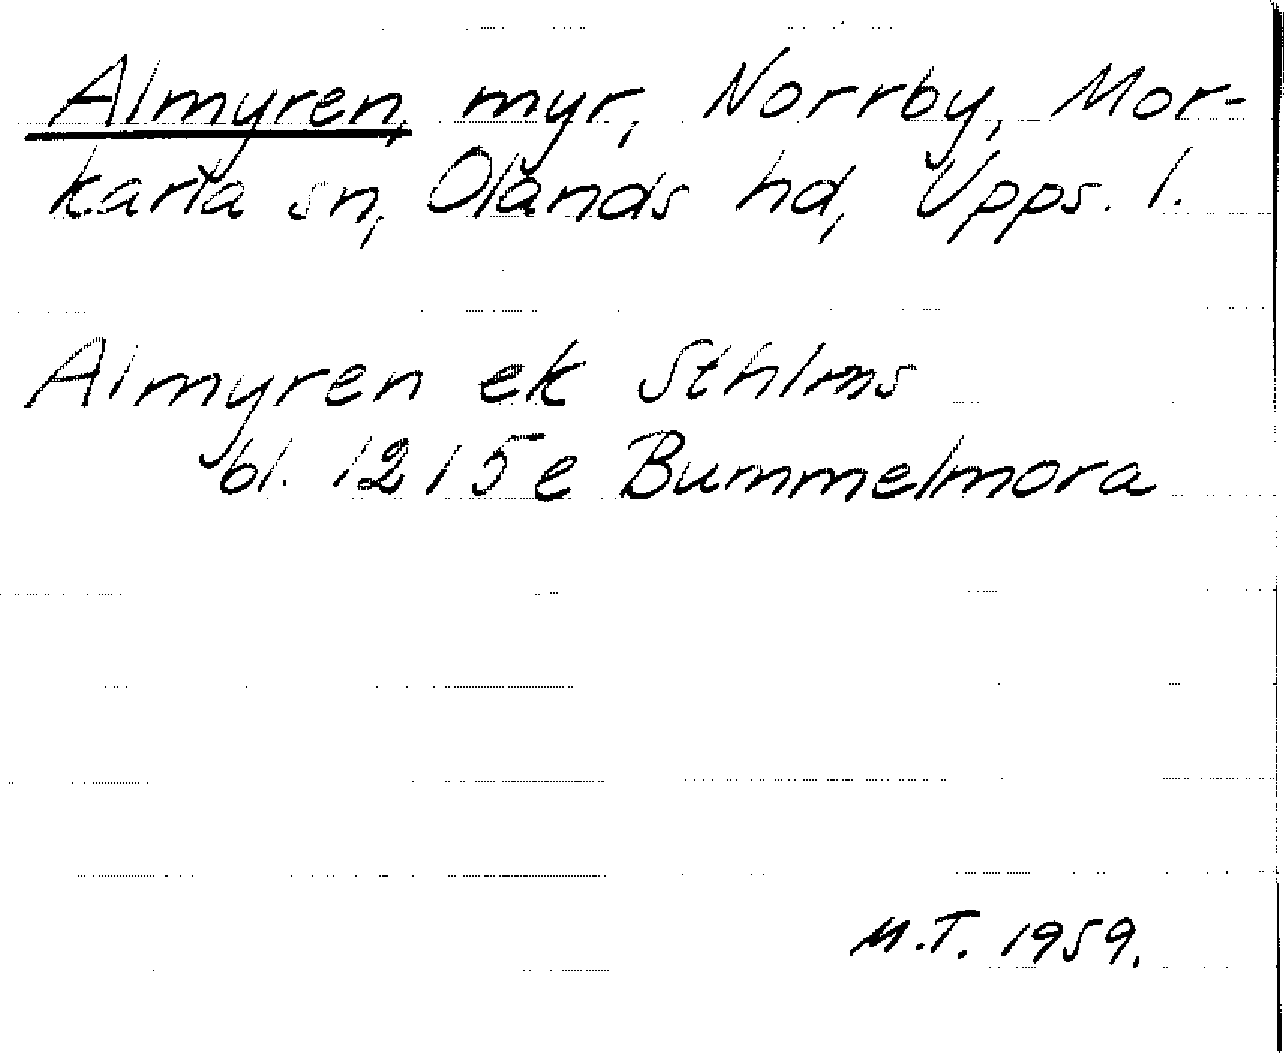 Almyren, myr, Norrby, Mor-
karla sn, Olands hd, Upps. l.
Almyren ek Sthlms
bl. 1215e Bummelmora
M.T. 1959.